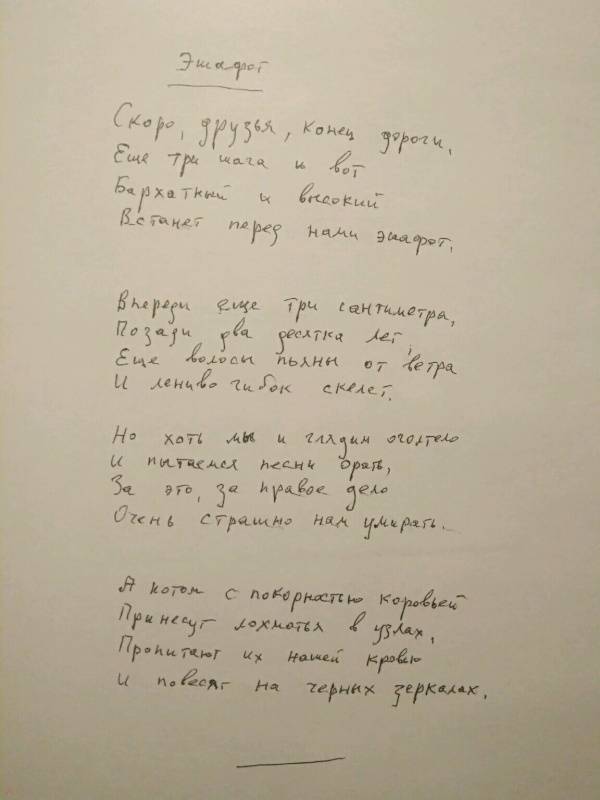 Эшафот
Скоро, друзья, конец дороги,
Еще три шага и вот
Бархатный и высокий
Встанет перед нами эшафот.
Впереди еще три сантиметра,
Позади два десятка лет,
Еще волосы пьяны от ветра
И лениво гибок скелет.
Но хоть мы и глядим оголтело
И пытаемся песни орать,
За это, за правое дело
Очень страшно нам умирать.
А потом с покорностью коровьей
Принесут лохмотья в узлах,
Пропитают их нашей кровью
И повесят на черных зеркалах.